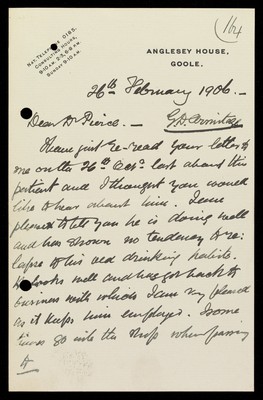 164
NAT. TELEPHONE 0183.
CONSULTING HOURS,
9-10 A.M. 2-3, 6-8 P.M.
SUNDAY 9-10 A.M.
ANGLESEY HOUSE,
GOOLE.
26th February 1906.-
Dear Dr Pierce.-
I have just re-read your letter to
me on the 26th Octr. last about this
patient and I thought you would
like to hear about him. I am
pleased to tell you he is doing well
and has shown no tendency to re:
lapse to his old drinking habits.
He looks well and has got back to
business with which I am very pleased
as it keeps him employed. I some
times go into the shop when passing